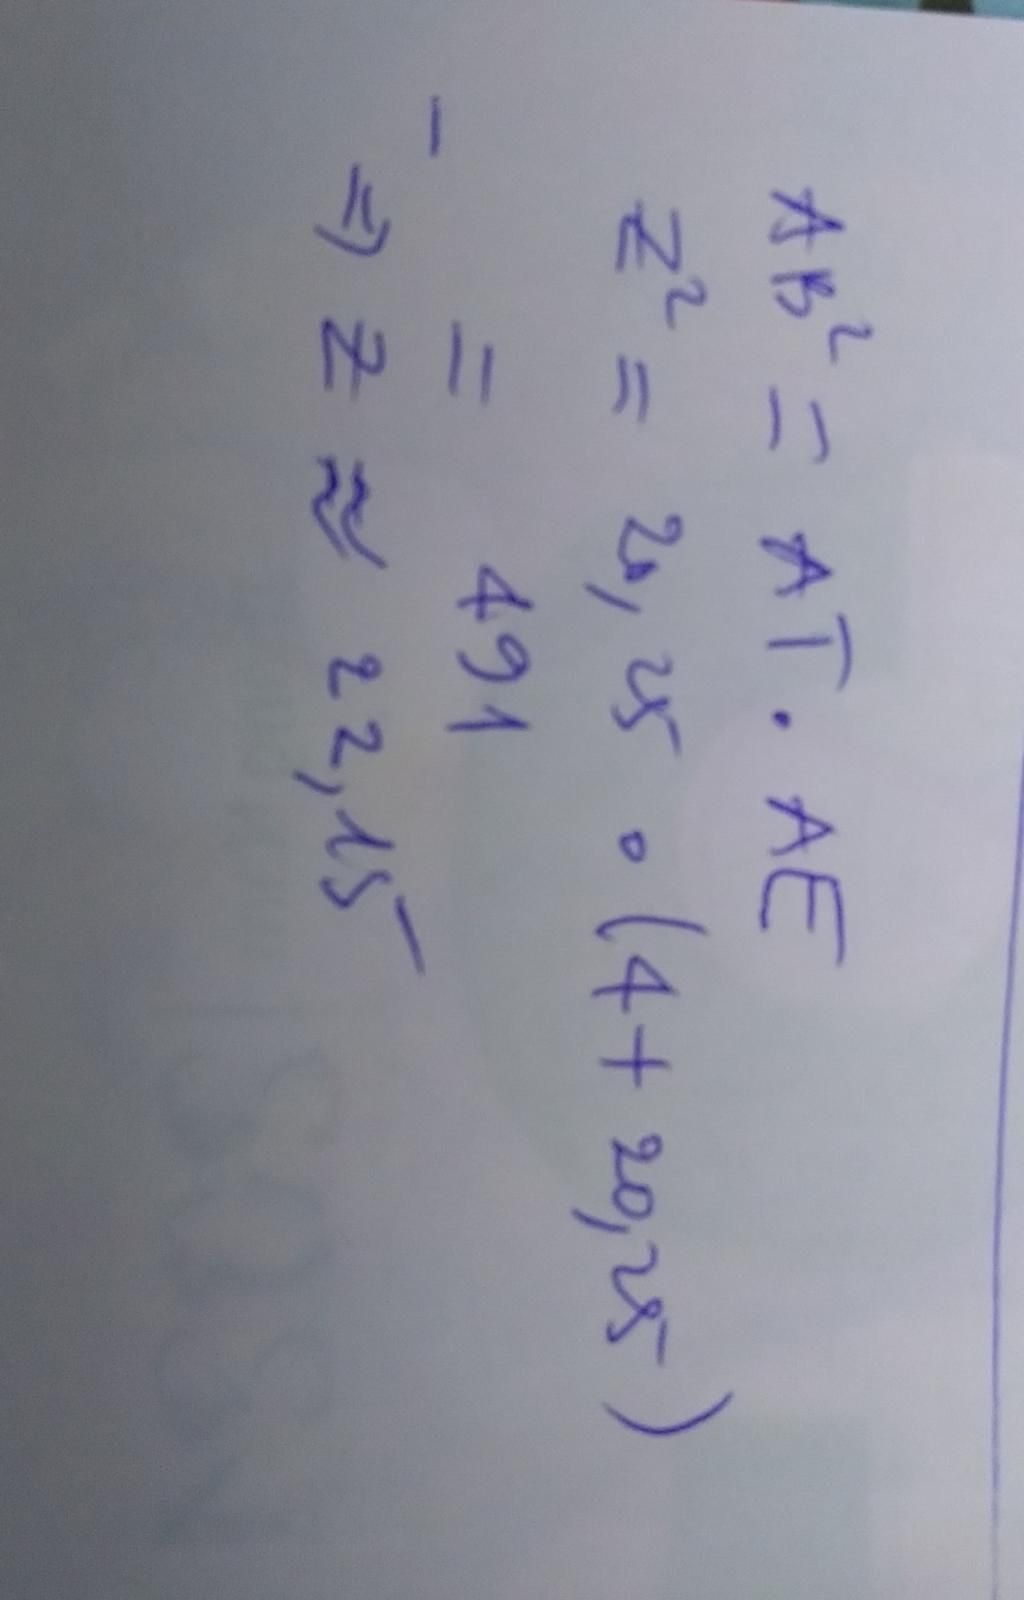 AB² = AT · AE
Z² = 20,25 · (4 + 20,25)
= 491
⇒ Z ≈ 22,15